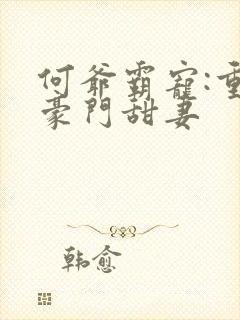 何爺霸寵:重
豪門甜妻
韩愈